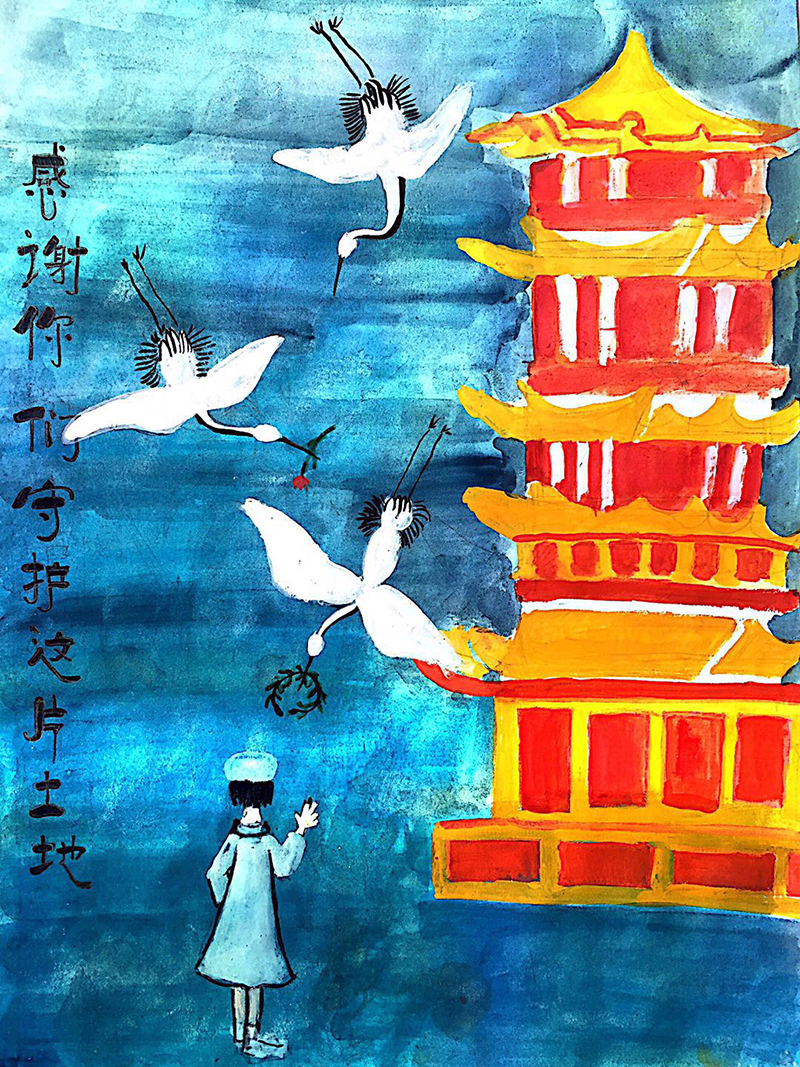 感谢你们守护这片土地